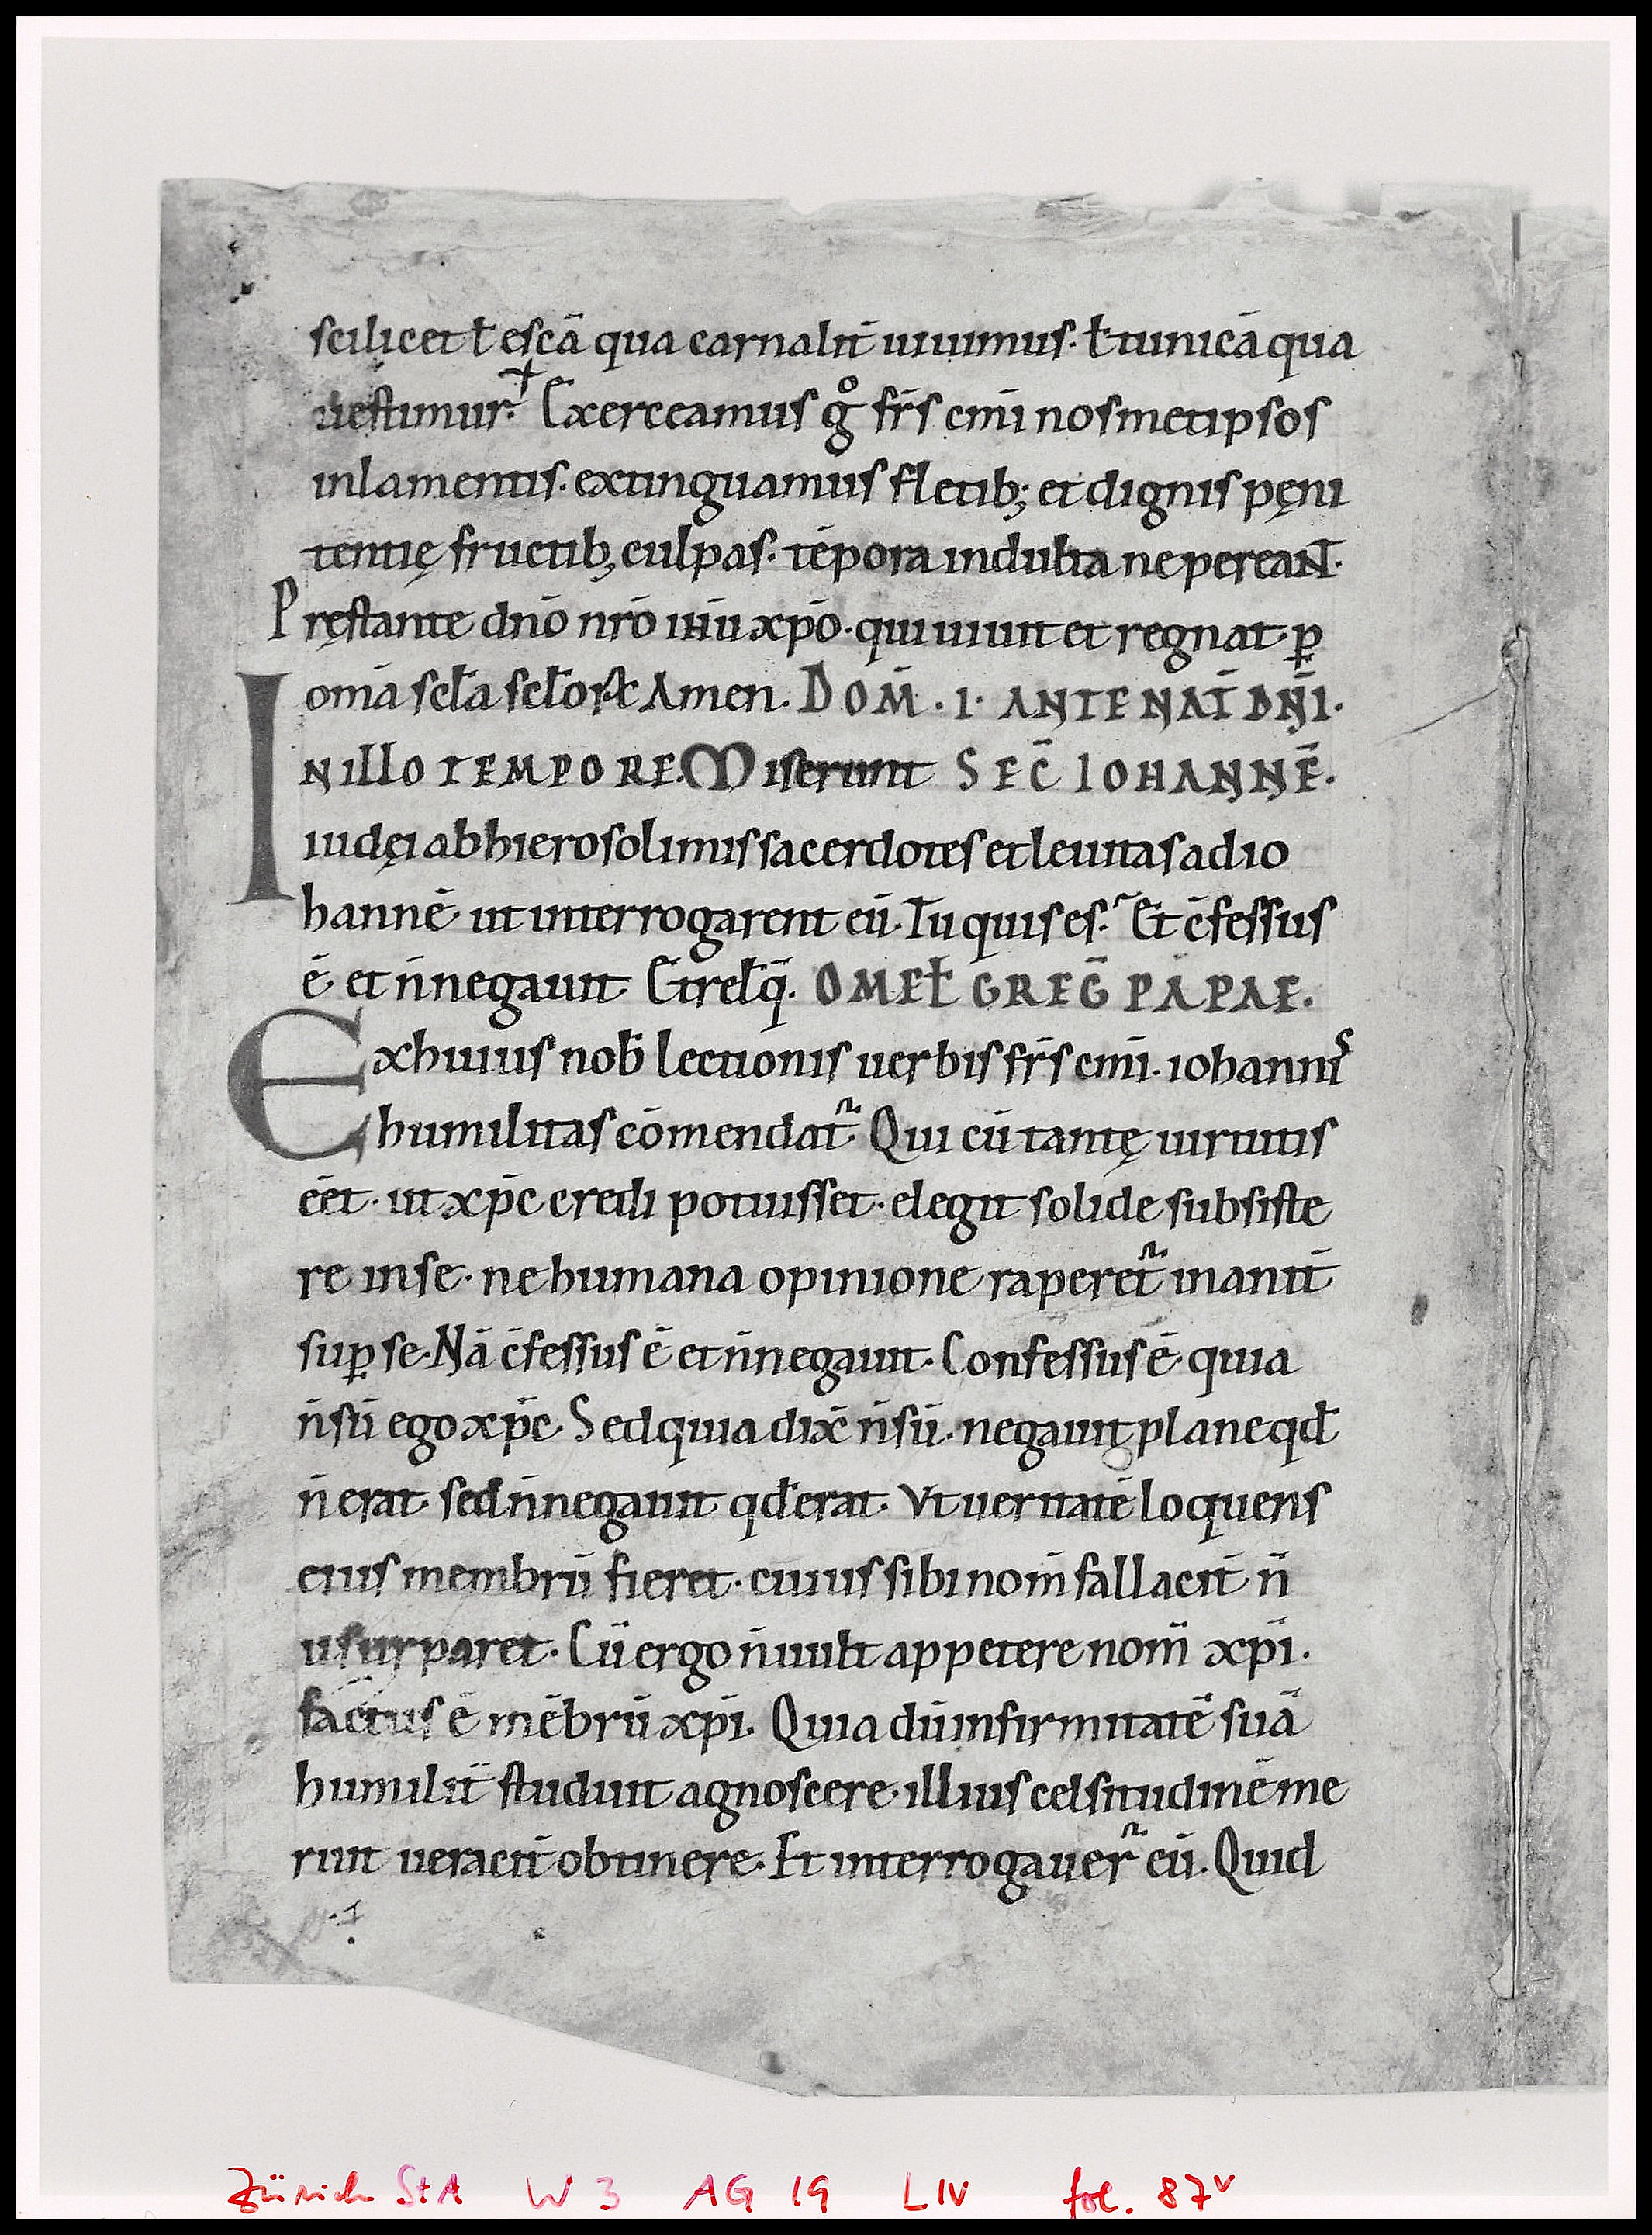 scilicet ł escā qua carnalit̄ uiuimus· ł tunicā qua
uestimur·⁊ Exerceamus gͦ fr̄s cm̄i nosmetipsos
inlamentis· extinguamus fletib; et dignis pęni
tentię fructib; culpas· tēpora indulta ne pereaNT·
Pręstante dn̄o nr̄o ıħū xp̄o· qui uiuit et regnat· ꝑ
om̄a secła secłoꝝ Amen. DOM̄ · I · ANTE NAT̄ DN̄I·
INILLO TEMPORE. Miserunt SEC̄ IOHANNĒ·
iudęi ab hierosolimis sacerdotes et leuitas ad io
hannē ut interrogarent eū· Tu quis es·̃ Et c̄fessus
ē· et n̄ negauit Et relq̄· OMEŁ GREḠ PAPAE·
Ex huius nob̄ lectionis uerbis fr̄s cm̄i· iohanniˢ
humilitas cōmendat᷑· Qui cū tantę uirtutis
ēet· ut xp̄c credi potuisset· elegit solide subsiste
re in se· ne humana opinione raperet᷑ inanit̄
suꝑ se· Nā c̄fessus ē et n̄ negauit· Confessus ē· quia
n̄ sū ego xp̄c· Sed quia dix̄ n̄ sū· negauit plane qđ
n̄ erat· sed n̄ negauit qđ erat· Vt ueritatē loquens
eius membrū fieret· cuius sibi nom̄ fallacit̄ n̄
usurparet· Cū ergo n̄ uult appetere nom̄ xp̄i·
factus ē mēbrū xp̄i· Quia dū infirmitatē suā
humilit̄ studuit agnoscere· illius celsitudinē me
ruit ueracit̄ obtinere· Et interrogauer᷑ eū· Quid
Zürich StA W 3 AG 19 LIV fol. 87v